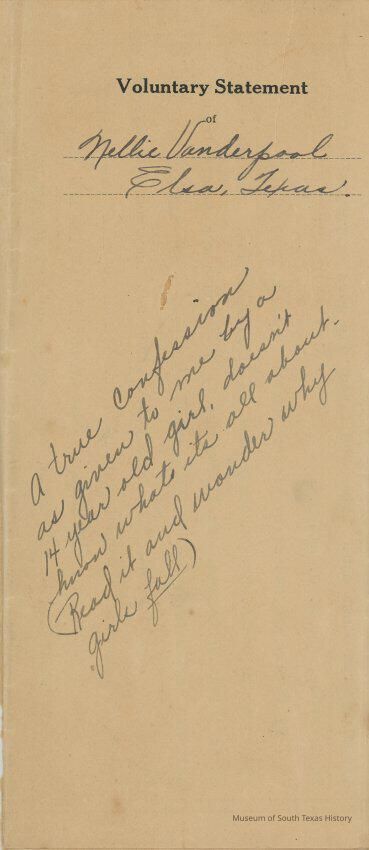 Voluntary Statement
of
Nellie Vanderpool
Elsa, Texas.
A true confession
as given to me by a
14 year old girl, doesn't
know whats its all about.
(Read it and wonder why
girls fall)
Museum of South Texas History